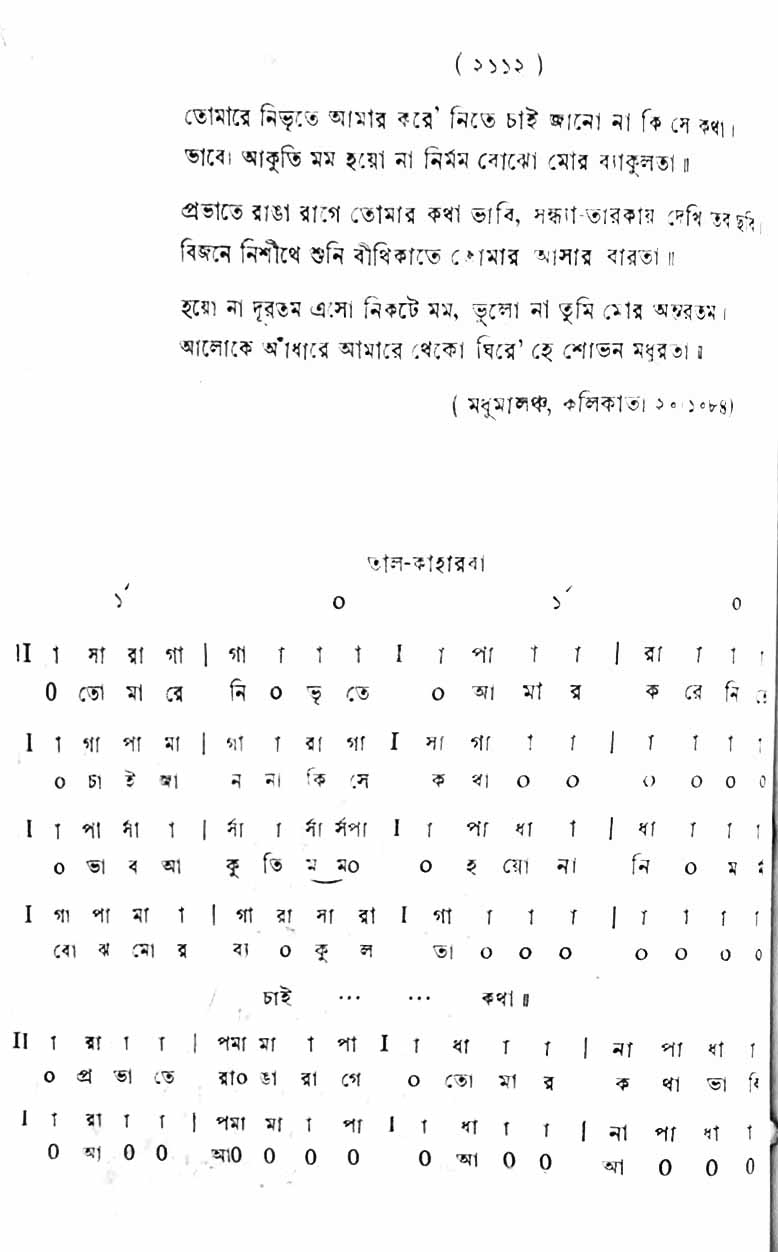 ( ২১১২ )
তোমারে নিভৃতে আমার করে' নিতে চাই জানো না কি সে কথা।
ভাবো আকুতি মম হয়ো না নির্মম বোঝো মোর ব্যাকুলতা॥
প্রভাতে রাঙা রাগে তোমার কথা ভাবি, সন্ধ্যা-তারকায় দেখি তব ছবি।
বিজনে নিশীথে শুনি বীথিকাতে তোমার আসার বারতা॥
হয়ো না দূরতম এসো নিকটে মম, ভুলো না তুমি মোর অন্তরতম।
আলোকে আঁধারে আমারে থেকো ঘিরে' হে শোভন মধুরতা॥
( মধুমালঞ্চ, কলিকাতা ২০/১০৮৪)
তাল-কাহারবা
১´ 0 ১´ 0
II া সা রা গা | গা া া া I া পা া া | রা া া া
0 তো মা রে নি ০ ভৃ তে ০ আ মা র ক রে নি তে
I া গা পা মা | গা া রা গা I সা গা া া | া া া া
০ চা ই জা ন না কি সে ক থা ০ ০ ০ ০ ০ ০
I া পা র্সা া | র্সা া র্সা র্সপা I া পা ধা া | ধা া া া
০ ভা ব আ কু তি ম ম০ ০ হ য়ো না নি ০ র্ম ম
I গা পা মা া | গা রা সা রা I গা া া া | া া া া
বো ঝ মো র ব্যা ০ কু ল তা ০ ০ ০ ০ ০ ০ ০
চাই ··· ··· কথা॥
II া রা া া | পমা মা া পা I া ধা া া | না পা ধা া
০ প্র ভা তে রা০ ঙা রা গে ০ তো মা র ক থা ভা বি
I া রা া া | পমা মা া পা I া ধা া া | না পা ধা া
0 আ 0 0 আ0 0 0 0 0 আ 0 0 আ 0 0 0